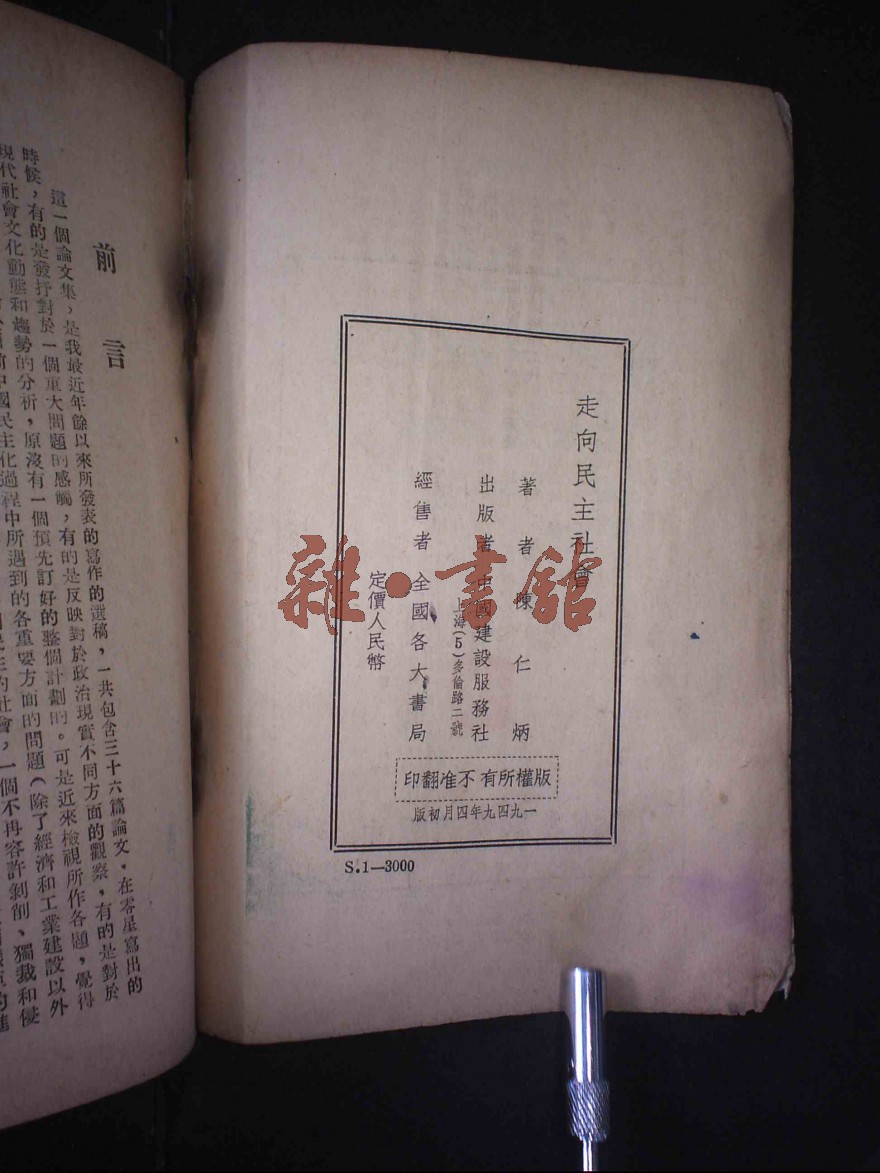 走向民主社會
著者 陳仁炳
出版者 中國建設服務社
上海(5)多倫路二號
經售者 全國各大書局
定價人民幣
版權所有 不准翻印
一九四九年四月初版
S.1—3000
雜·書館
前言
這一個論文集，是我最近年餘以來所發表的寫作的選稿，一共包含三十六篇論文。在零星寫出的
時候，有的是發抒對於一個重大問題的感觸，有的是反映對於政治現實不同方面的觀察，有的是對於
現代社會文化動態和趨勢的分析，原沒有一個預先訂好的整個計劃的。可是近來檢視所作各題，覺得
中國民主化過程中所遇到的各重要方面的問題（除了經濟和工業建設以外
的社會，一個不再容許剝削、獨裁和侵